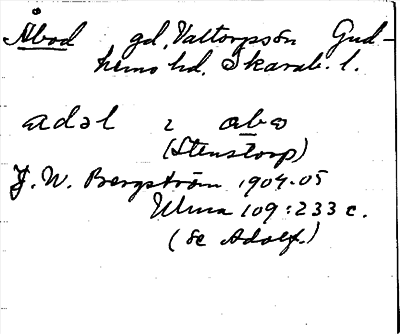 Åbod gd, Valtorpssön Gud-
hems hd, Skarab. l.
adəl i abo
(Stenstorp)
J. W. Bergström 1904-05
Ulma 109:233 c.
(se Adolf.)